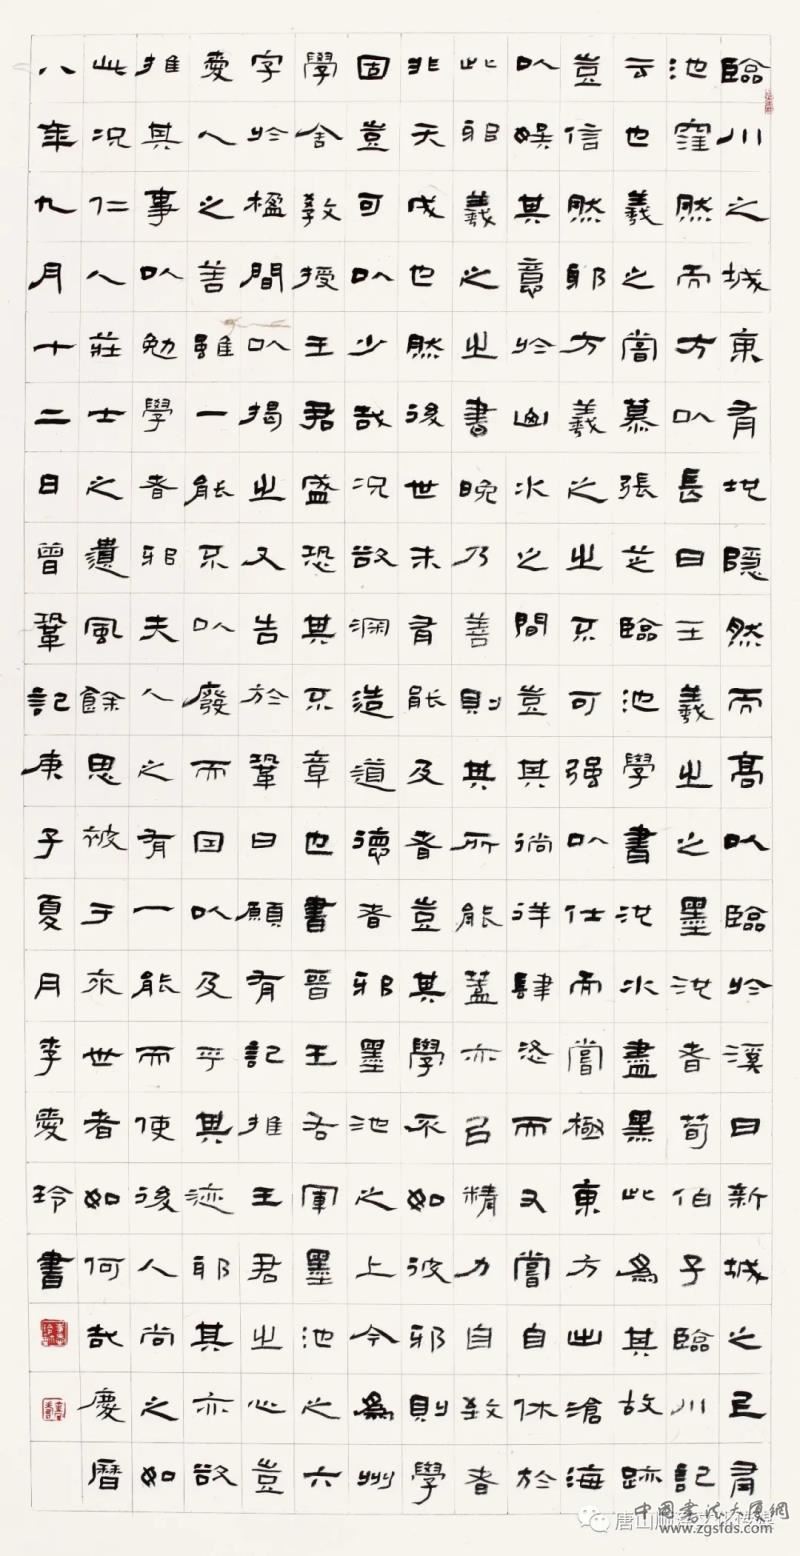 臨川之城東有地隱然而高以臨於溪曰新城之上有
池窪然而方以長曰王羲之之墨池者荀伯子臨川記
云也羲之嘗慕張芝臨池學書池水盡黑此為其故跡
豈信然邪方羲之之不可强以仕而嘗極東方出滄海
以娛其意於山水之間豈其徜徉肆恣而又嘗自休於
此邪羲之之書晚乃善則其所能蓋亦以精力自致者
非天成也然後世未有能及者豈其學不如彼邪則學
固豈可以少哉況欲深造道德者邪墨池之上今為州
學舍教授王君盛恐其不章也書晉王右軍墨池之六
字於楹間以揭之又告於鞏曰願有記推王君之心豈
愛人之善雖一能不以廢而因以及乎其迹邪其亦欲
推其事以勉學者邪夫人之有一能而使後人尚之如
此況仁人莊士之遺風餘思被于來世者如何哉慶曆
八年九月十二日曾鞏記庚子夏月李愛玲書
中国書法大厦網
www.zgsfds.com
唐山